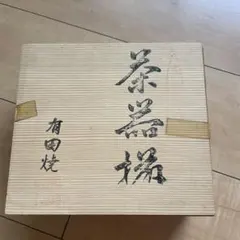 茶器揃
有田焼